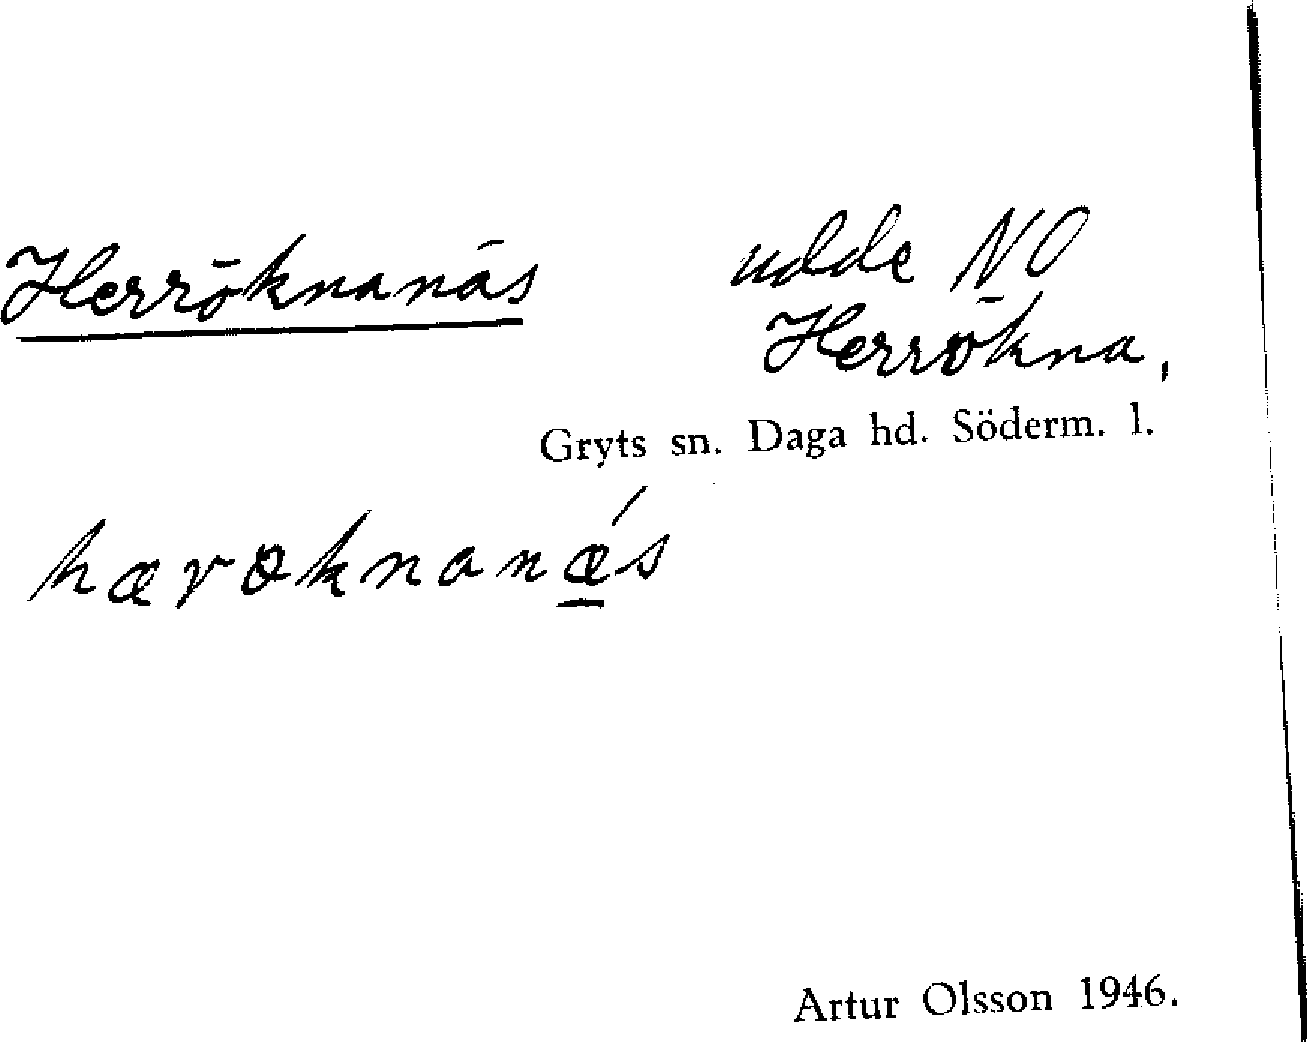 Herröknanäs udde NO
Herrökna,
Gryts sn. Daga hd. Söderm. l.
hærɵknanǽs
Artur Olsson 1946.